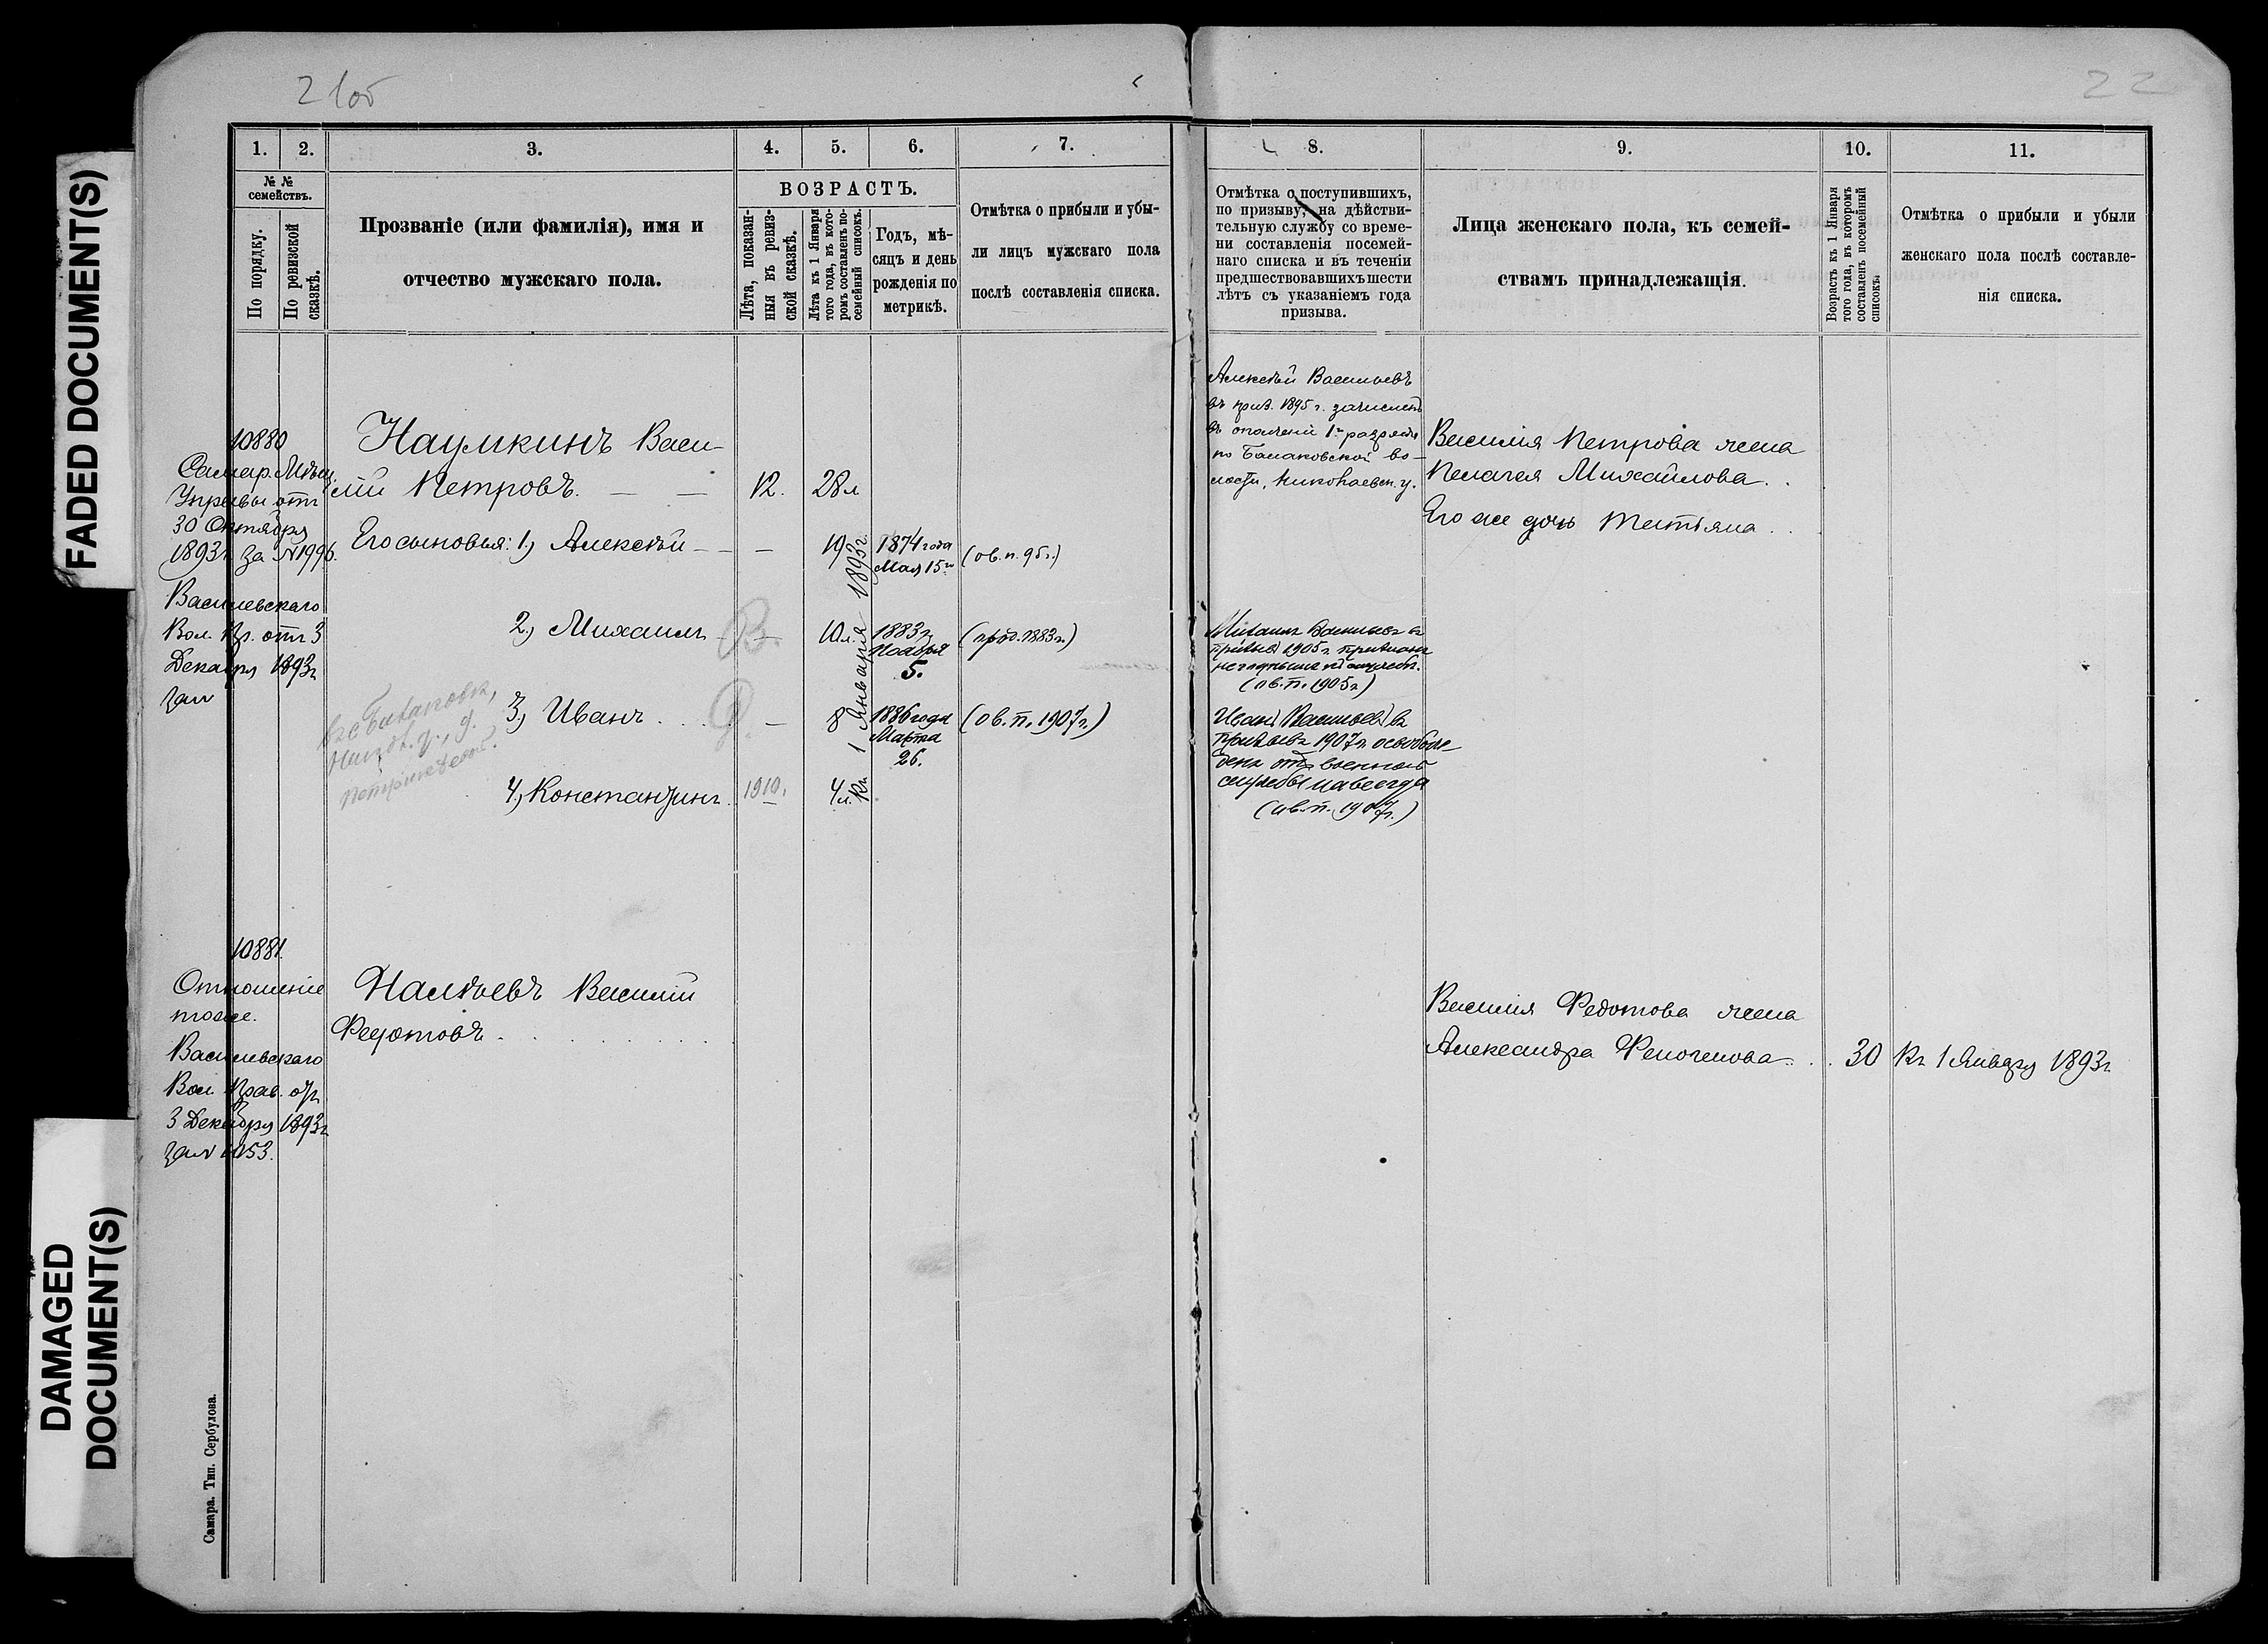 FADED DOCUMENT(S)
DAMAGED
DOCUMENT(S)
21об
22
1. 2. 3. 4. 5. 6. 7.
№ №
семействъ.
По порядку.
По ревизской
сказкѣ.
Прозваніе (или фамилія), имя и
отчество мужскаго пола.
ВОЗРАСТЪ.
Лѣта, показан-
ныя въ ревиз-
ской сказкѣ.
Лѣта къ 1 Января
того года, въ кото-
ромъ составленъ по-
семейный списокъ.
Годъ, мѣ-
сяцъ и день
рожденія по
метрикѣ.
Отмѣтка о прибыли и убы-
ли лицъ мужскаго пола
послѣ составленія списка.
10880
Самар. Мѣщ.
Управы отъ
30 Октября
1893г. за №1996.
Василевскаго
Вол. Пр. отъ 3
Декабря 1893г.
за №
Наумкинъ Васи-
лій Петровъ. — — 12. 28 л
Его сыновья: 1.) Алексѣй — — — 19 1874 года
Мая 15го (ов. п. 95 г.)
2.) Михаилъ — 10 л. 1883 г.
Ноября
5. (прод. 1883 г.)
3.) Иванъ . . . — 8 1886 года
Марта
26. (ов. п. 1907 г.)
4.) Константинъ. 1910. 4 л.
Къ 1 Января 1893 г.
10881.
Отношеніе
тоже.
Василевскаго
Вол. Прав. отъ
3 Декабря 1893г.
за №
Федотовъ . . . . . . . .
Самара. Тип. Сербулова.
8. 9. 10. 11.
Отмѣтка о поступившихъ,
по призыву, на дѣйстви-
тельную службу со време-
ни составленія посемей-
наго списка и въ теченіи
предшествовавшихъ шести
лѣтъ съ указаніемъ года
призыва.
Лица женскаго пола, къ семей-
ствамъ принадлежащія.
Возрастъ къ 1 Января
того года, въ которомъ
составленъ посемейный
списокъ.
Отмѣтка о прибыли и убыли
женскаго пола послѣ составле-
нія списка.
Алексѣй Васильевъ
въ приз. 1895 г. зачисленъ
въ ополченіе 1го разряда
по Балаковской во-
лости, Николаевск. у.
Михаилъ Васильевъ въ
призывѣ 1905 г. признанъ
(ов. п. 1905 г.)
Иванъ Васильевъ въ
призывъ 1907 г. освобож-
денъ отъ военной
службы навсегда
(ов. п. 1907 г.)
Василія Петрова жена
Пелагея Михайлова . .
Его же дочь Татьяна . .
Василія Федотова жена
Александра 30 Къ 1 Январю 1893 г.